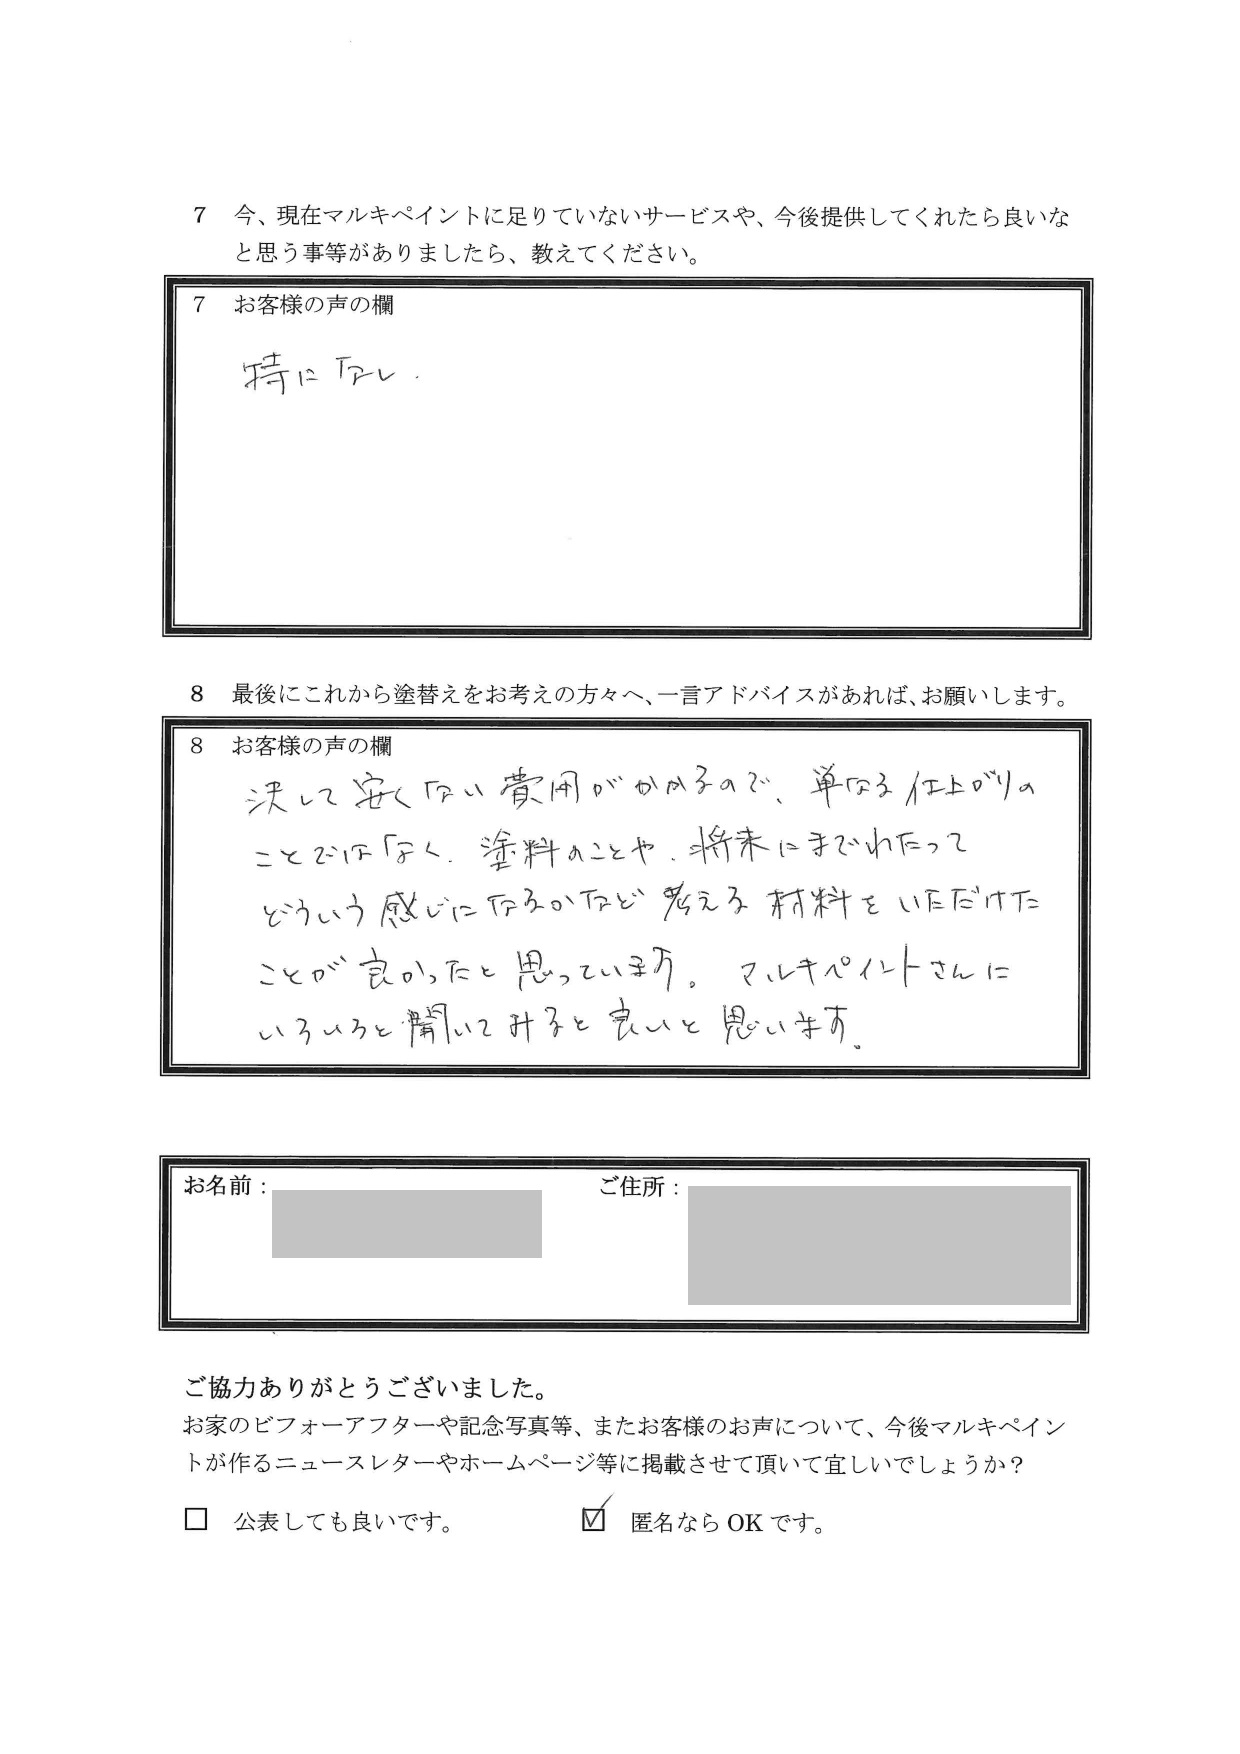 7 今、現在マルキペイントに足りていないサービスや、今後提供してくれたら良いな
と思う事等がありましたら、教えてください。
7 お客様の声の欄
特になし.
8 最後にこれから塗替えをお考えの方々へ、一言アドバイスがあれば、お願いします。
8 お客様の声の欄
決して安くない費用がかかるので、単なる仕上がりの
ことではなく、塗料のことや、将来にまでわたって
どういう感じになるかなど考える材料をいただけた
ことが良かったと思っています。マルキペイントさんに
いろいろと聞いてみると良いと思います。
お名前: ご住所:
ご協力ありがとうございました。
お家のビフォーアフターや記念写真等、またお客様のお声について、今後マルキペイン
トが作るニュースレターやホームページ等に掲載させて頂いて宜しいでしょうか?
□ 公表しても良いです。 ☑ 匿名なら OK です。